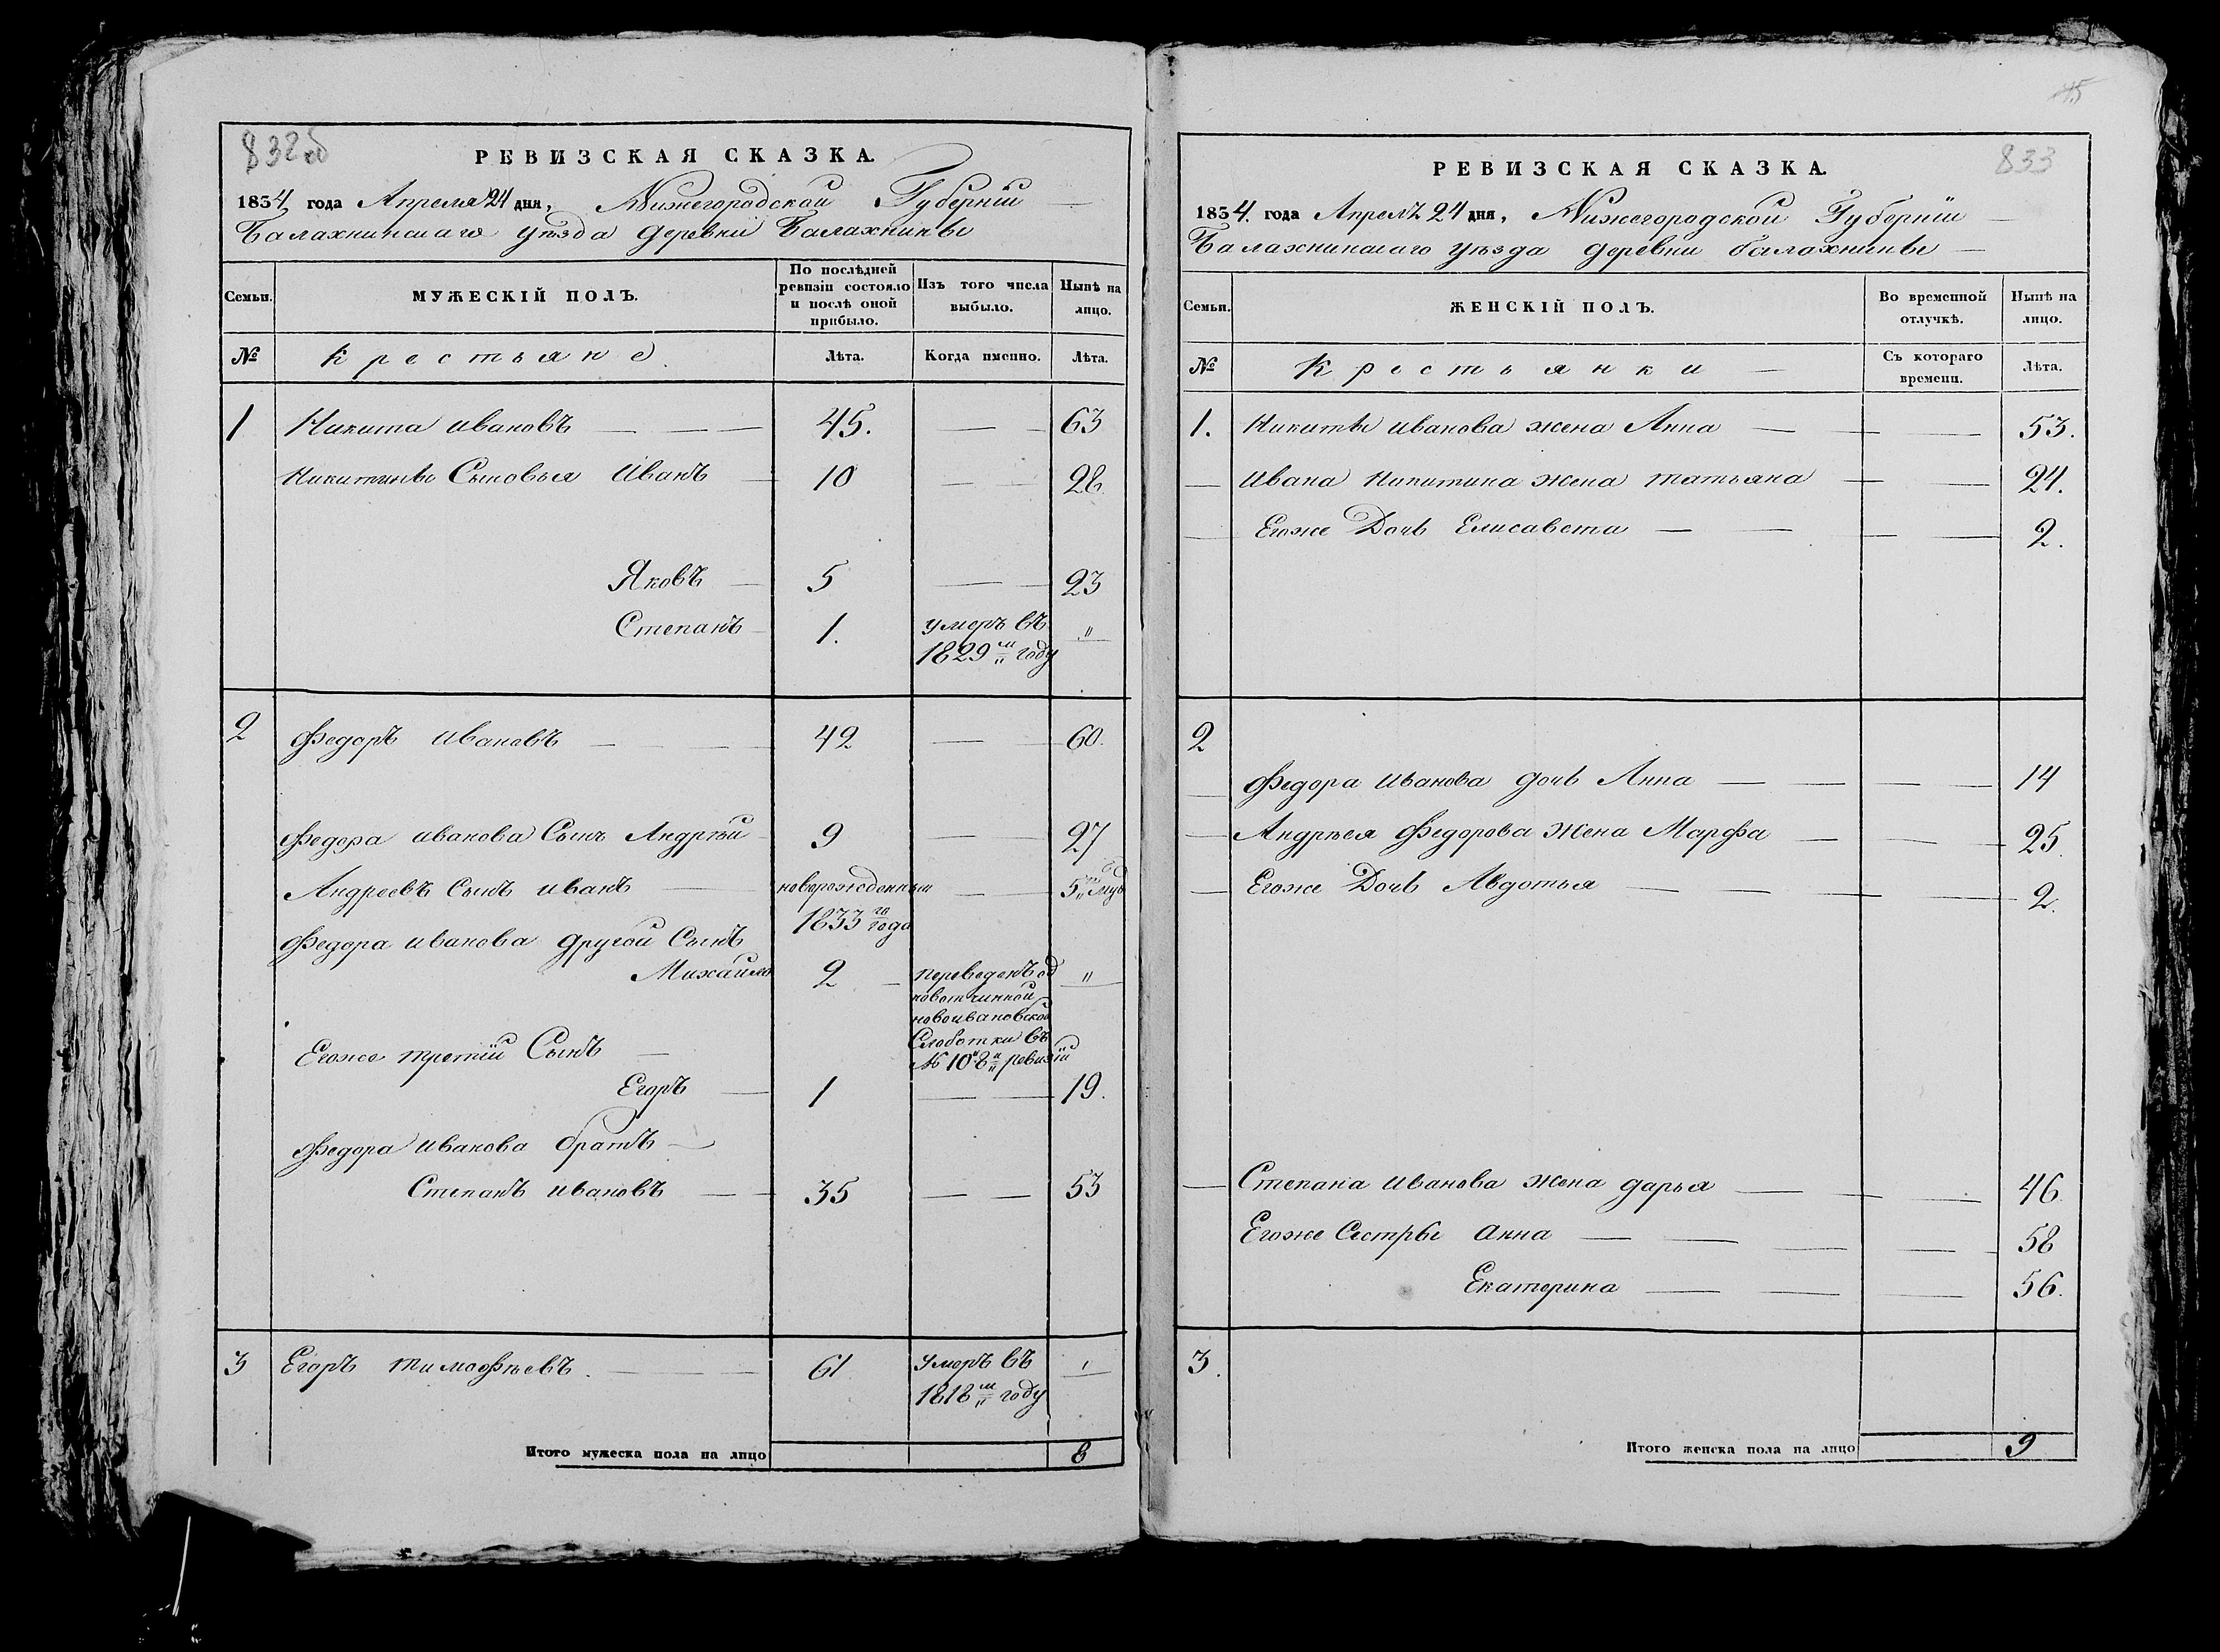 832об
РЕВИЗСКАЯ СКАЗКА.
1834 года Апреля 24 дня, Нижегородской Губерніи
Балахнинскаго уѣзда деревни Балахнины
Семьи.
МУЖЕСКІЙ ПОЛЪ.
По послѣдней ревизіи состояло и послѣ оной прибыло.
Изъ того числа выбыло.
Нынѣ на лицо.
№ Крестьяне Лѣта. Когда именно. Лѣта.
1 Никита ивановъ 45. 63
Никитины Сыновья Иванъ 10 28
Яковъ 5 23
Степанъ 1. умеръ въ "
1829 м году
2 Федоръ ивановъ 42 60.
Федора иванова Сынъ Андрѣй 9 27
Андреевъ Сынъ иванъ новорожденный 5
1833 го года
Федора иванова другой Сынъ
Михаило 2 переведенъ "
новоивановской
Слоботки въ
Егоже третій Сынъ
№ 10 8 й ревизіи
Егоръ 1 19.
Федора иванова братъ
Степанъ ивановъ 35 53
3 Егоръ тимофѣевъ 61 умеръ въ
1818 м году
Итого мужеска пола на лицо 8
45
833
РЕВИЗСКАЯ СКАЗКА.
1834. года Апрелѣ 24 дня, Нижегородской Губерніи
Балахнинскаго уѣзда деревни балахнины
Семьи.
ЖЕНСКІЙ ПОЛЪ.
Во временной отлучкѣ.
Нынѣ на лицо.
№ Крестьянки Съ котораго времени. Лѣта.
1. Никиты иванова жена Анна 53.
Ивана никитина жена татьяна 24.
Егоже Дочь Елисавета 2.
2
Федора иванова дочь Анна 14
Андрѣея Федорова жена Марфа 25.
Егоже Дочь Авдотья 2.
Степана иванова жена дарья 46.
Егоже Сестры анна 58
Екатерина 56.
3.
Итого женска пола на лицо 9